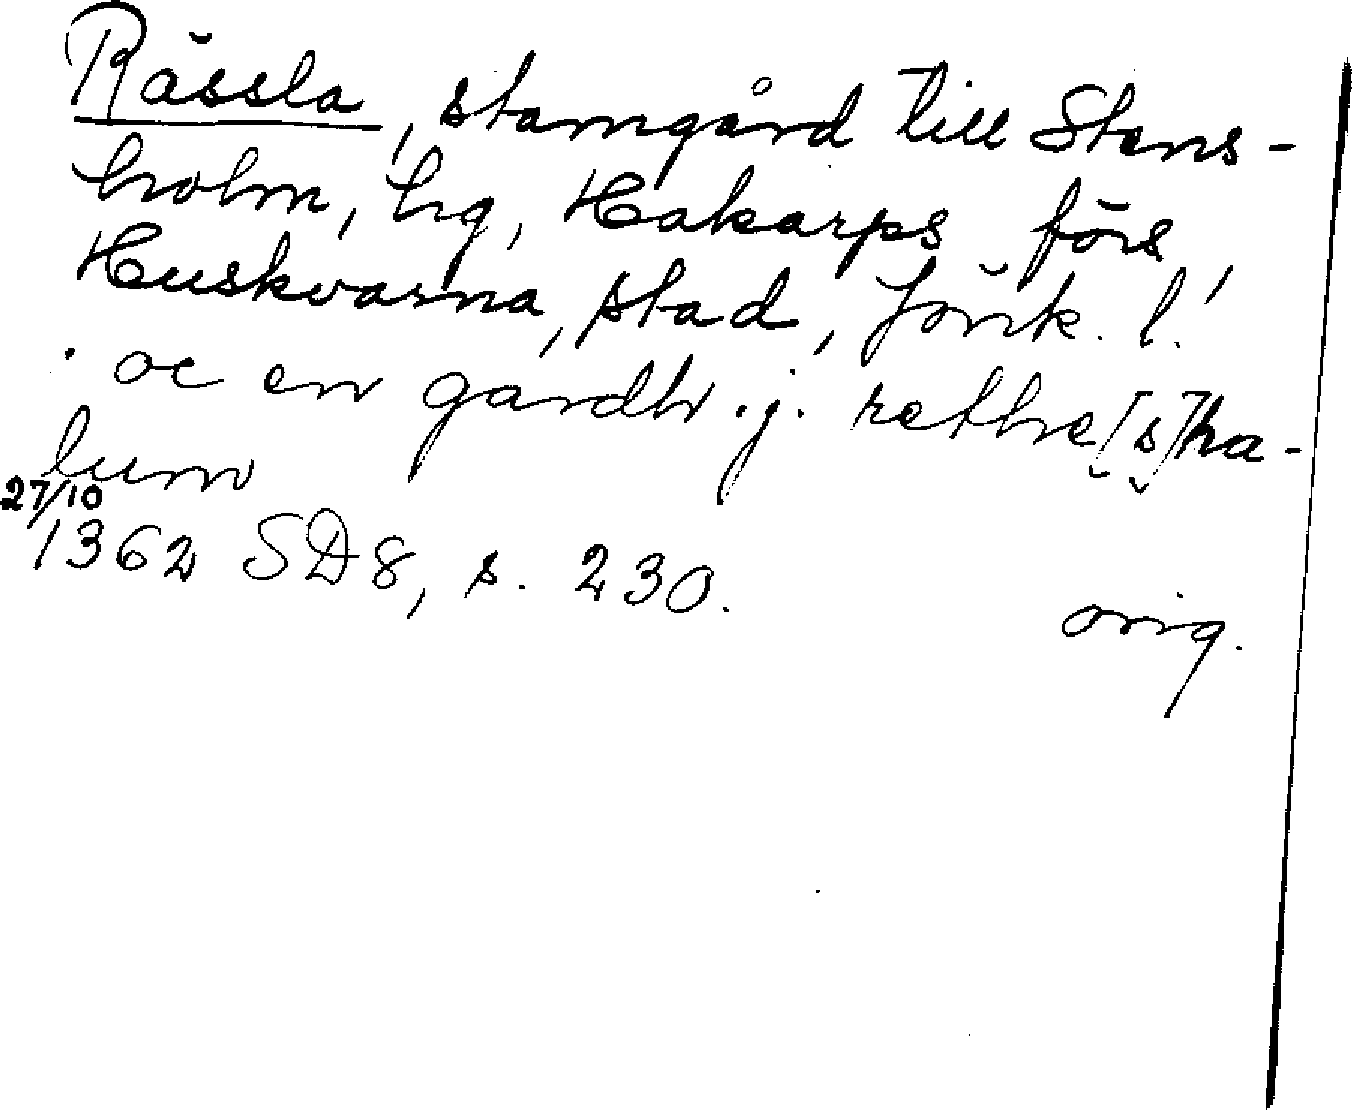 Rässla, stamgård till Stens-
holm, hg, Hakarps förs,
Huskvarna, stad, Jönk. l.
. oc en gardh .j. rethe[s]ha-
lum
27/10
1362 SD8, s. 230.
orig.